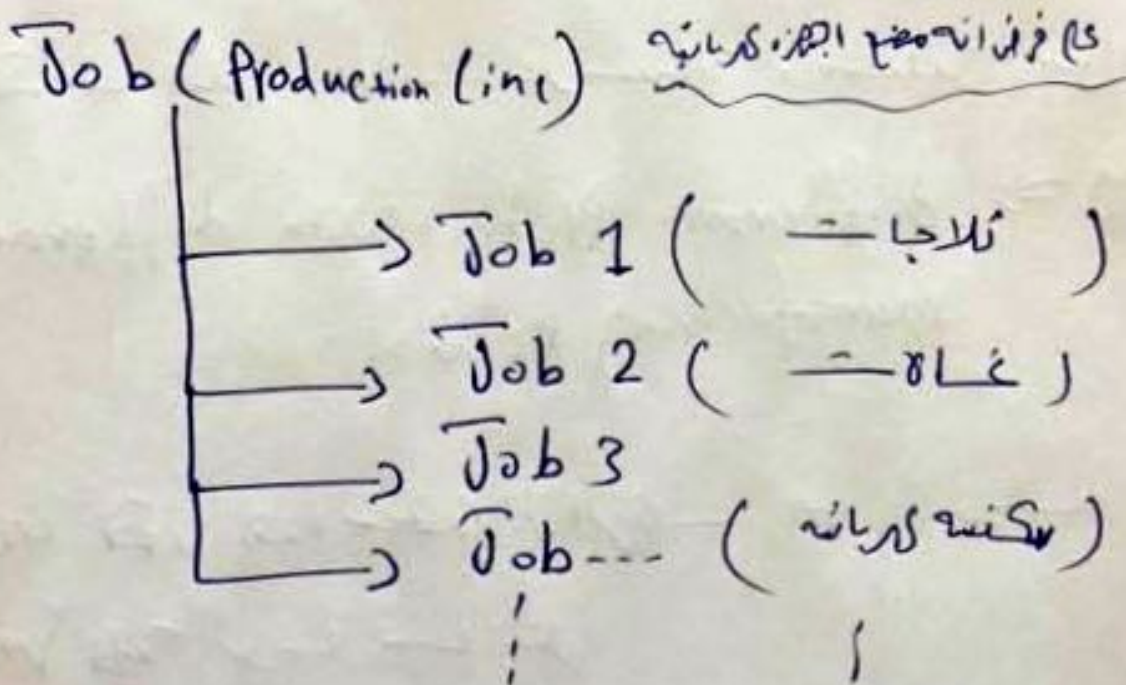 Job (Production line) على فرض انه مصنع اجهزه كهربائيه
Job 1 ( ثلاجات )
Job 2 ( غسالات )
Job 3
Job ---- ( مكنسه كهربائيه )